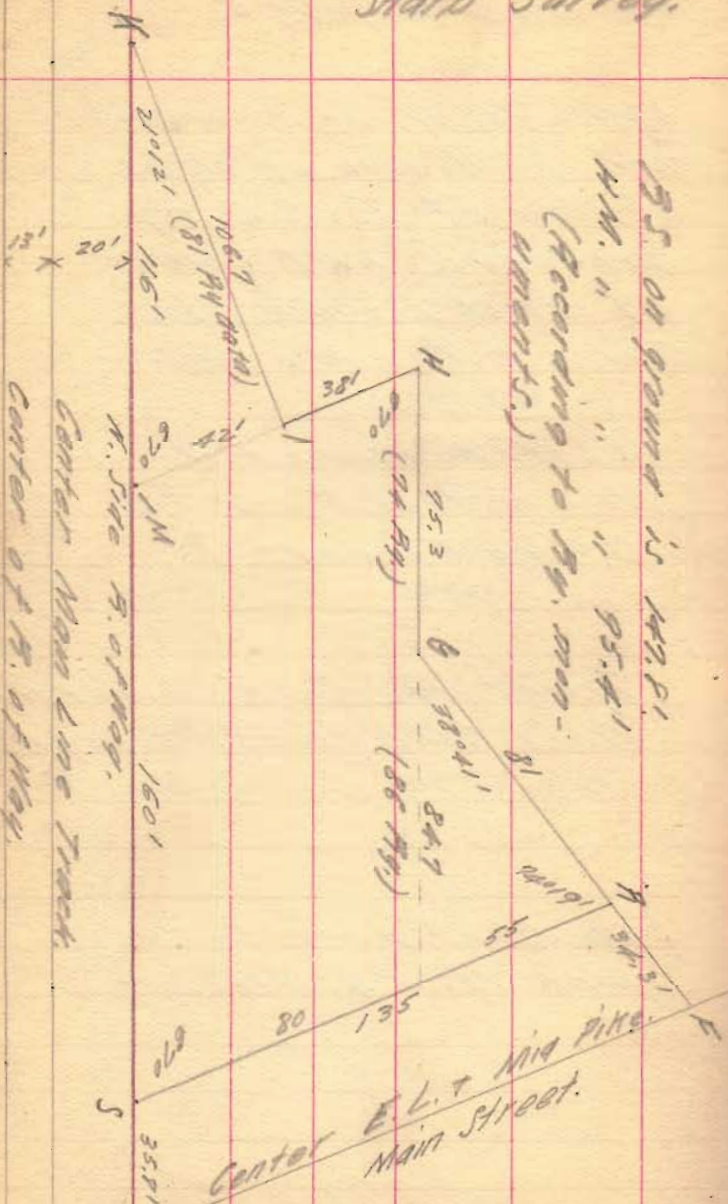 Sharp Survey.
BS on ground is 147.8'
HM. " " " 95.4'
(According to Ry. mon-
uments.)
K
21°12'
116'
106.7
(81 Ry data)
20'
13'
38'
L
42'
67°
M
H
67°
95.3
(94 Ry.)
G
38°41'
81
84.9
(86 Ry.)
74°19'
A
34.3'
F
55
80
135
67°
S
35.8'
N. Side R. of Way.
160'
Center Main Line Track.
Center of R. of Way.
Center E.L. & Mid Pike.
Main Street.